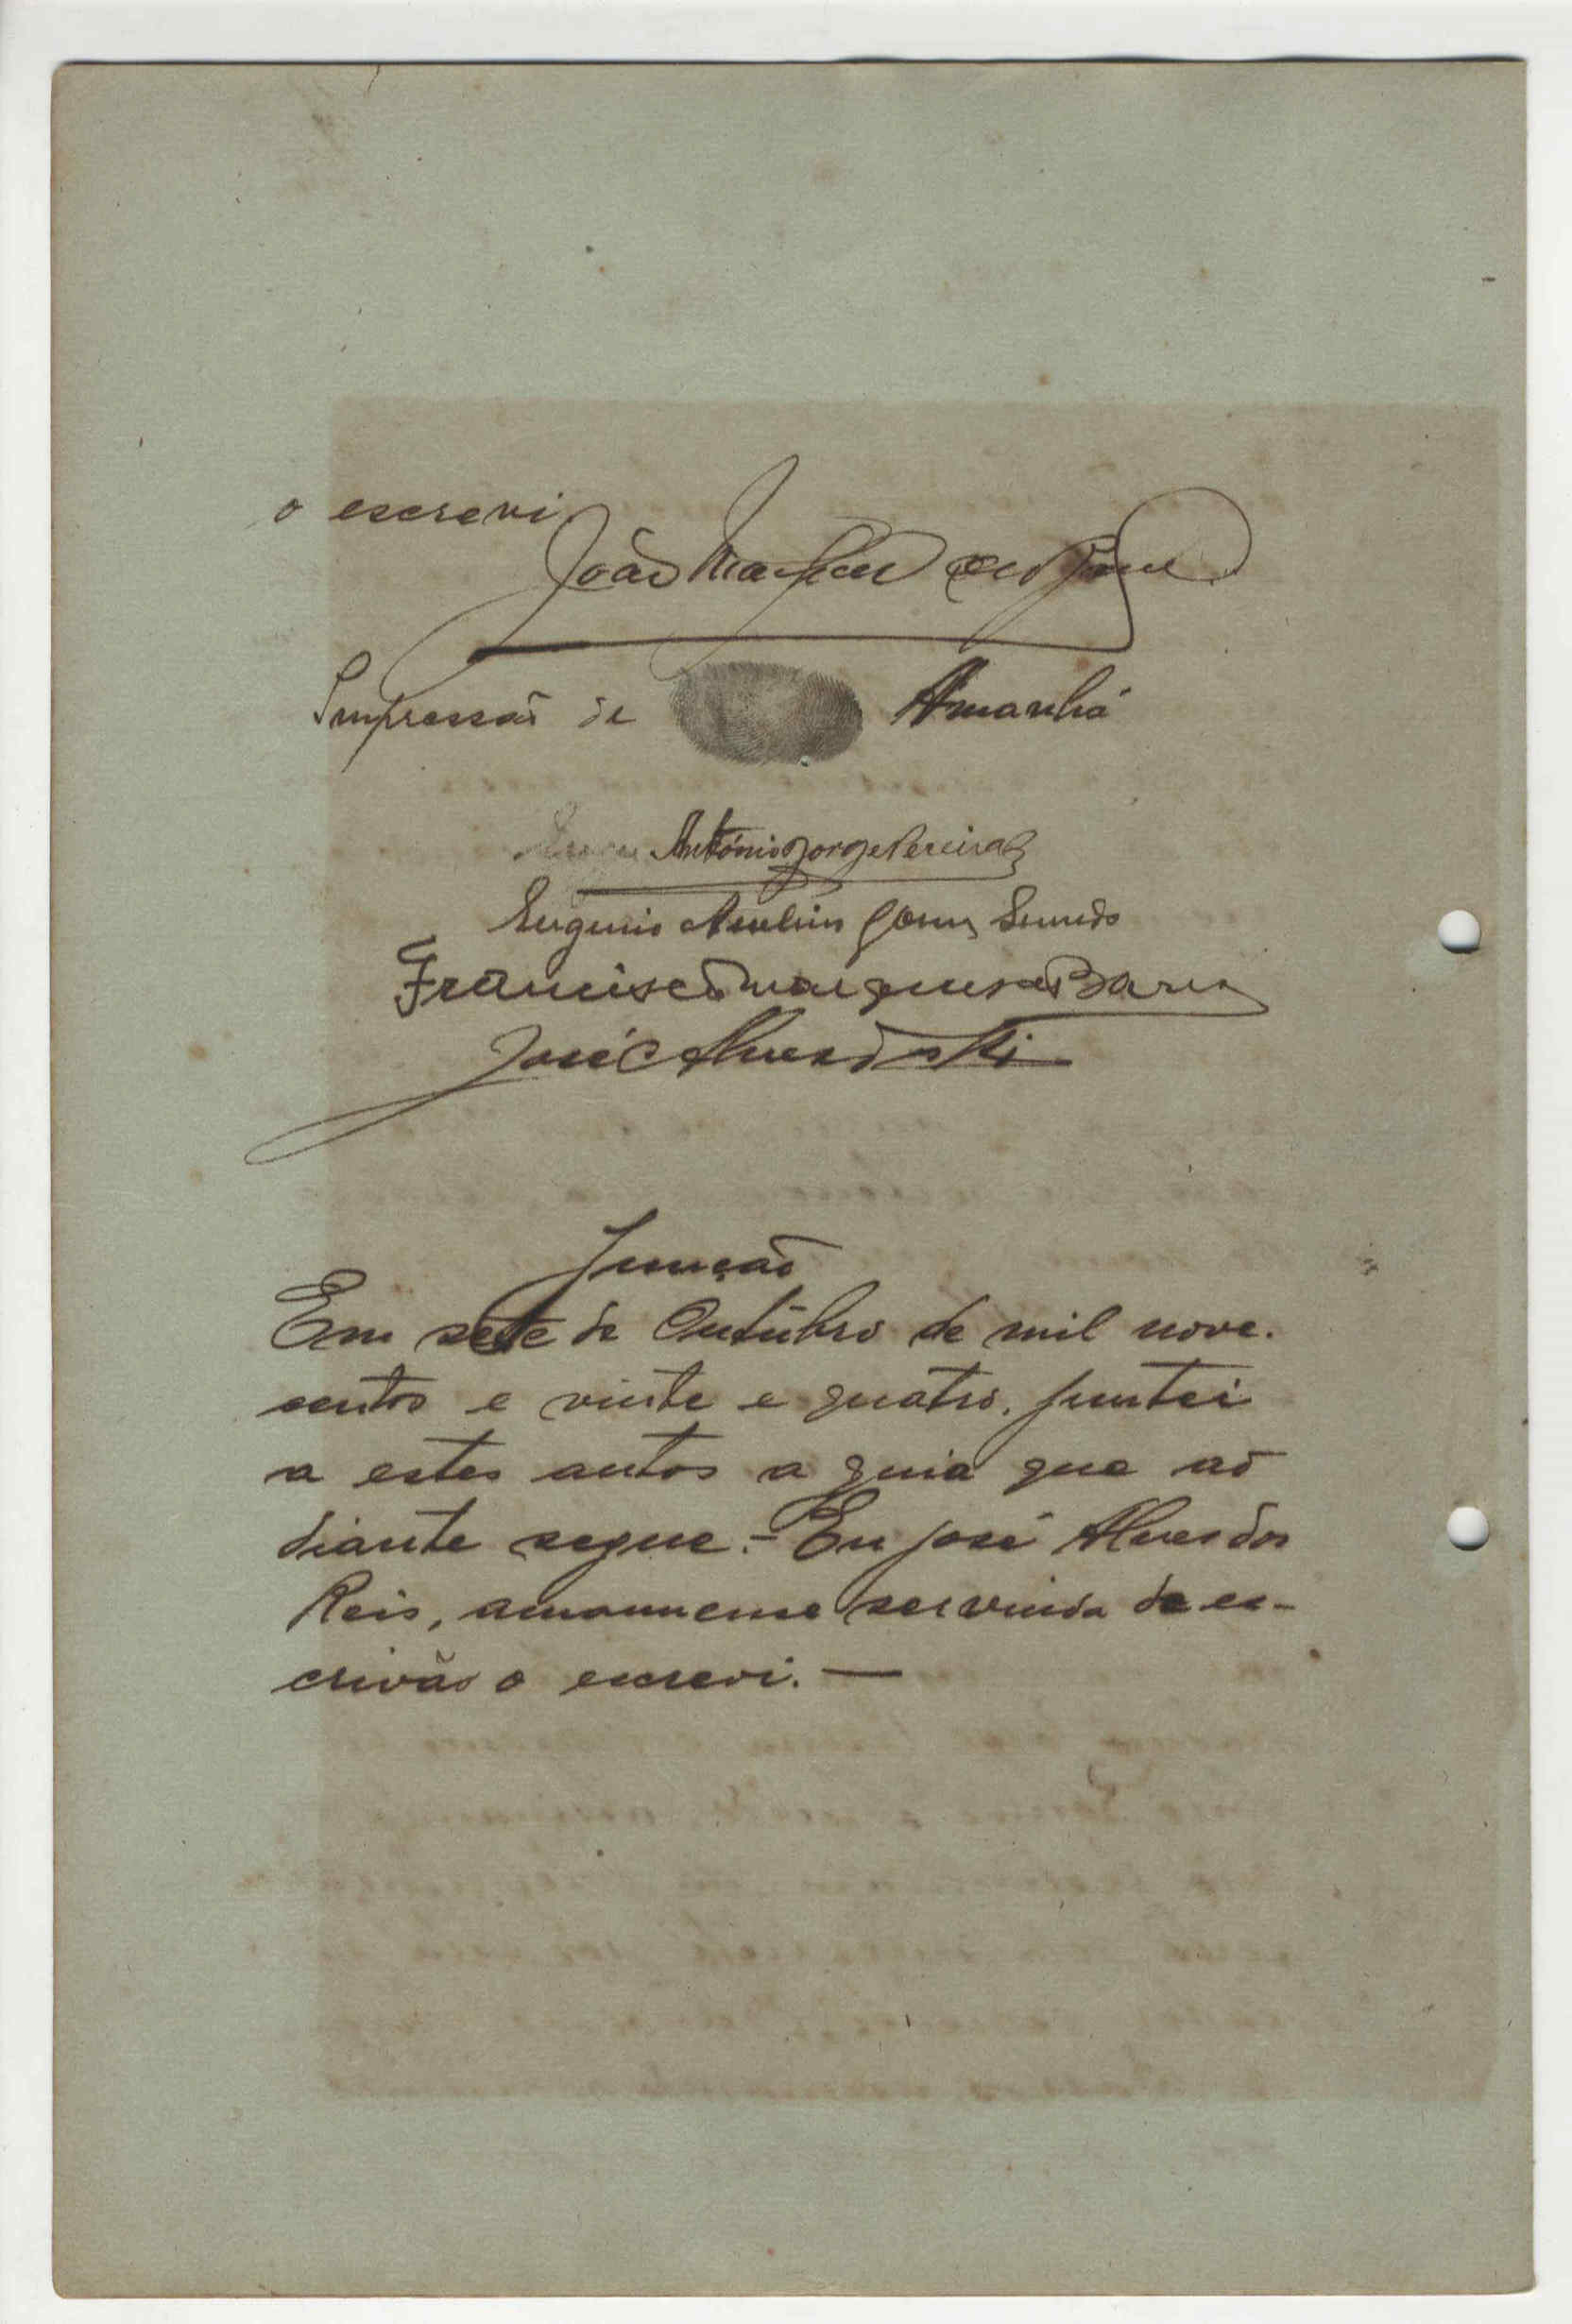 o escrevi
João
Impressão de Amanhá
António Jorge Pereira
Eugenio Gomes
Francisco Marques de Barros
José Alves dos Reis
Junção
Em sete de Outubro de mil nove-
centos e vinte e quatro, juntei
a estes autos a guia que ao
diante segue.- Eu José Alves dos
Reis, amanuense servindo de es-
crivão o escrevi. —